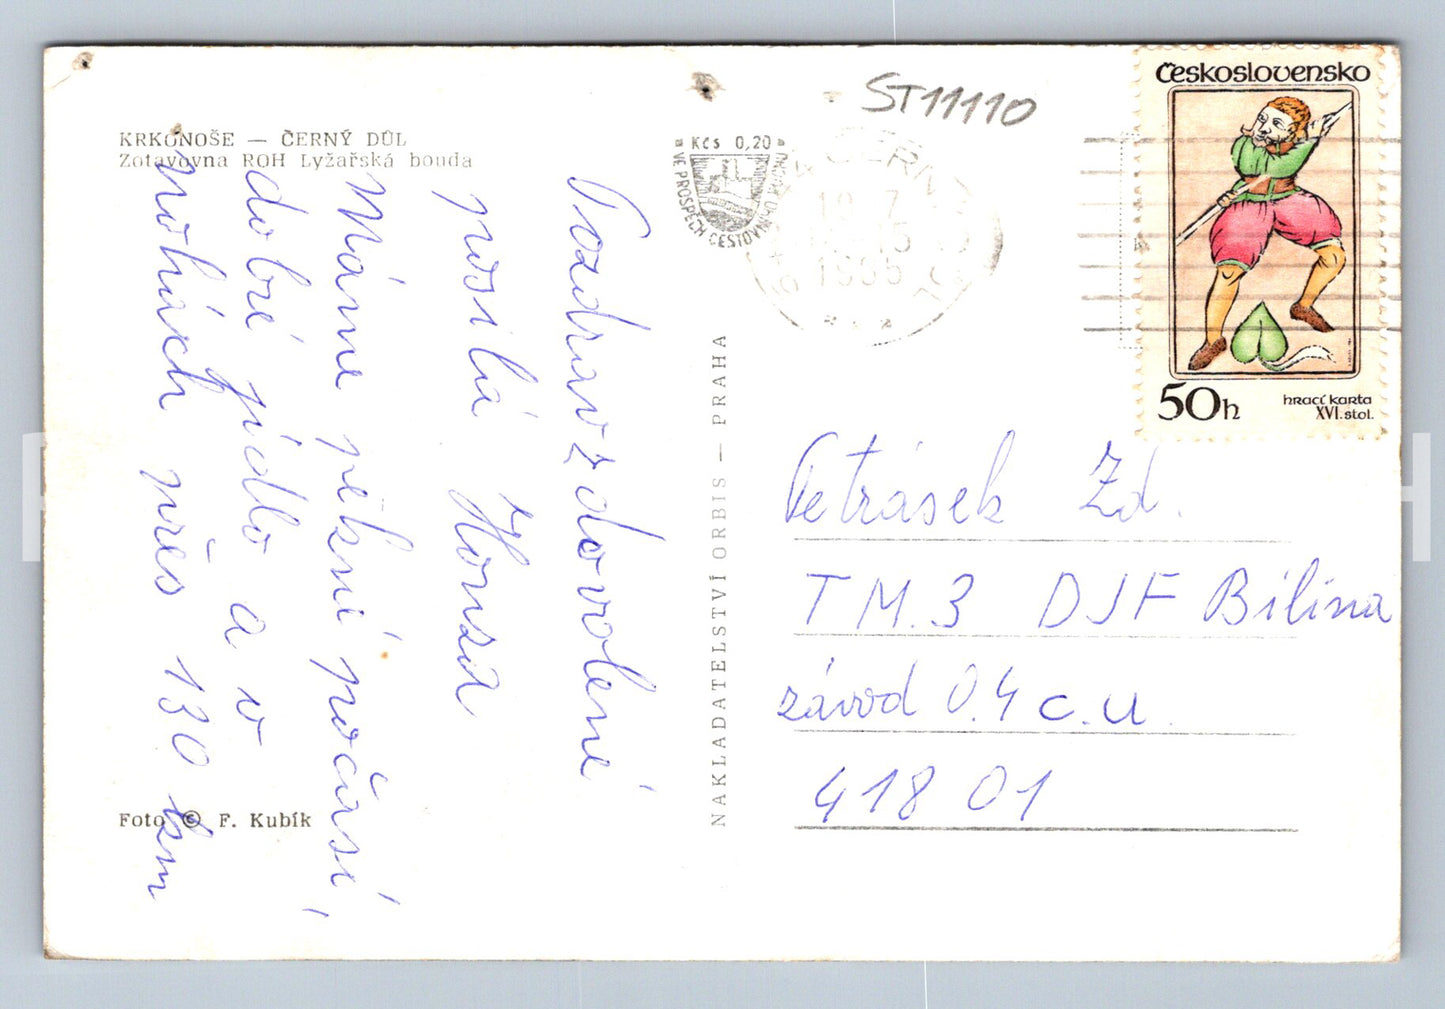 KRKONOŠE — ČERNÝ DŮL
Zotavovna ROH Lyžařská bouda
Pozdrav z dovolené
posílá Honza
Máme pěkné počasí,
dobré jídlo a v
nohách přes 130 km
Foto © F. Kubík
NAKLADATELSTVÍ ORBIS — PRAHA
Kčs 0,20
VE PROSPĚCH CESTOVNÍHO RUCHU
ST11110
ČERNÝ DŮL
Československo
50h
hrací karta
XVI. stol.
Petrásek Zd.
TM.3 DJF Bílina
závod 0.4 c.u.
418 01